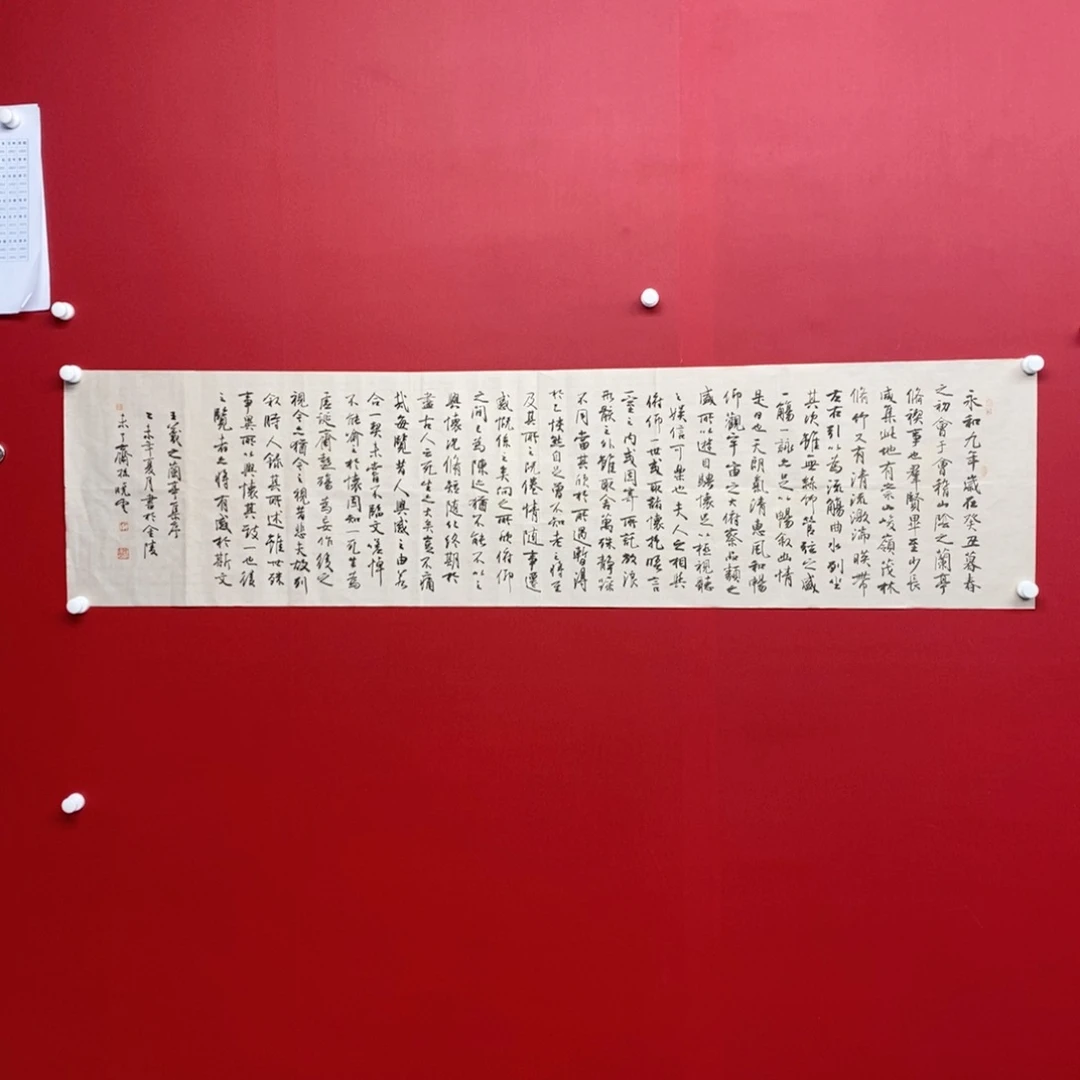 永和九年歲在癸丑暮春
之初會于會稽山陰之蘭亭
脩禊事也羣賢畢至少長
咸集此地有崇山峻嶺茂林
脩竹又有清流激湍暎帶
左右引以為流觴曲水列坐
其次雖無絲竹管弦之盛
一觴一詠亦足以暢叙幽情
是日也天朗氣清惠風和暢
仰觀宇宙之大俯察品類之
盛所以遊目騁懷足以極視聽
之娛信可樂也夫人之相與
俯仰一世或取諸懷抱晤言
一室之內或因寄所託放浪
形骸之外雖取舍萬殊静躁
不同當其欣於所遇暫得
於己快然自足曾不知老之將至
及其所之既倦情随事遷
感慨係之矣向之所欣俯仰
之間已為陳迹猶不能不以之
興懷況脩短随化終期於
盡古人云死生亦大矣豈不痛
哉每覽昔人興感之由若
合一契未嘗不臨文嗟悼
不能喻之於懷固知一死生為
虛誕齊彭殤為妄作後之
視今亦猶今之視昔悲夫故列
叙時人錄其所述雖世殊
事異所以興懷其致一也後
之覽者亦將有感於斯文
王羲之蘭亭集序
乙未年夏月書於金陵
未了齋孫曉雲